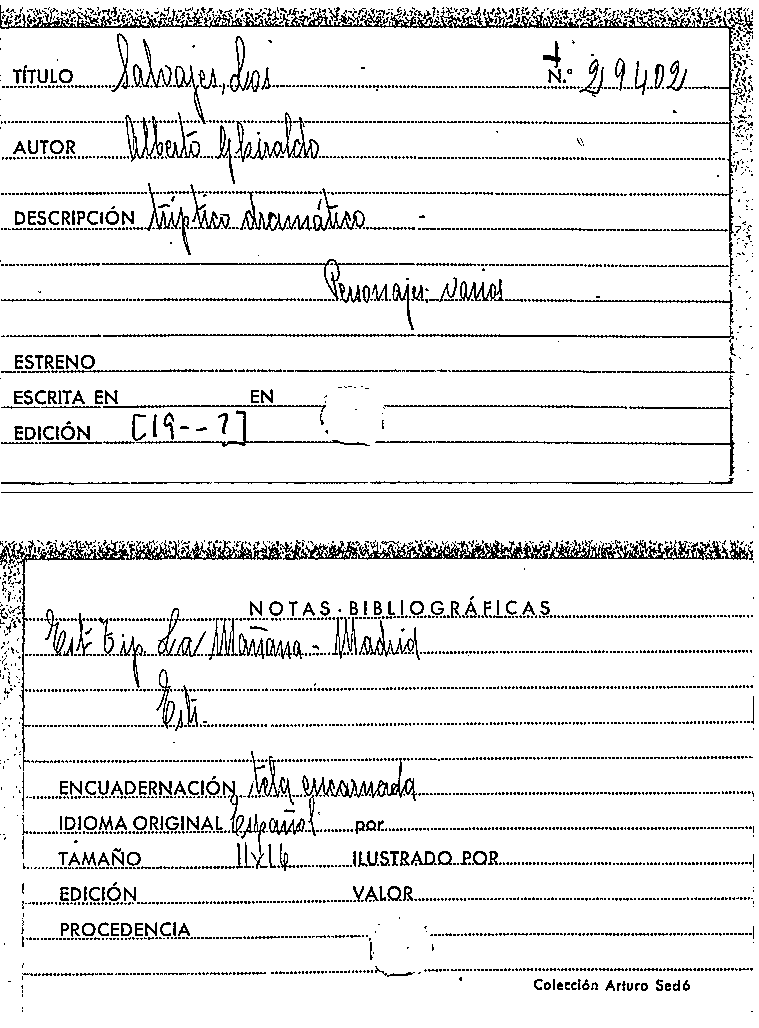 TÍTULO Salvajes, Los N.º 29402
AUTOR Alberto Ghiraldo
DESCRIPCIÓN tríptico dramático -
Personajes: varios
ESTRENO
ESCRITA EN EN
EDICIÓN [19--?]
NOTAS·BIBLIOGRÁFICAS
Est Tip. La Mañana - Madrid
ENCUADERNACIÓN tela encarnada
IDIOMA ORIGINAL Español por
TAMAÑO 11x16 ILUSTRADO POR
EDICIÓN VALOR
PROCEDENCIA
Colección Arturo Sedó